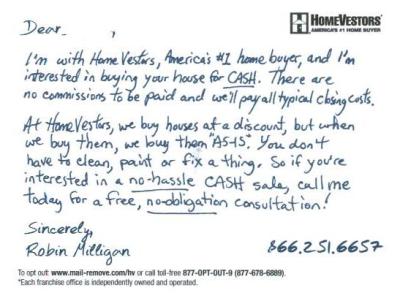 Dear ,
HomeVestors
AMERICA'S #1 HOME BUYER
I'm with HomeVestors, America's #1 home buyer, and I'm
interested in buying your house for CASH. There are
no commissions to be paid and we'll pay all typical closing costs.
At HomeVestors, we buy houses at a discount, but when
we buy them, we buy them "AS-IS". You don't
have to clean, paint or fix a thing. So if you're
interested in a no-hassle CASH sale, call me
today for a free, no-obligation consultation!
Sincerely,
Robin Milligan
866.251.6657
To opt out: www.mail-remove.com/hv or call toll-free 877-OPT-OUT-9 (877-678-6889).
*Each franchise office is independently owned and operated.